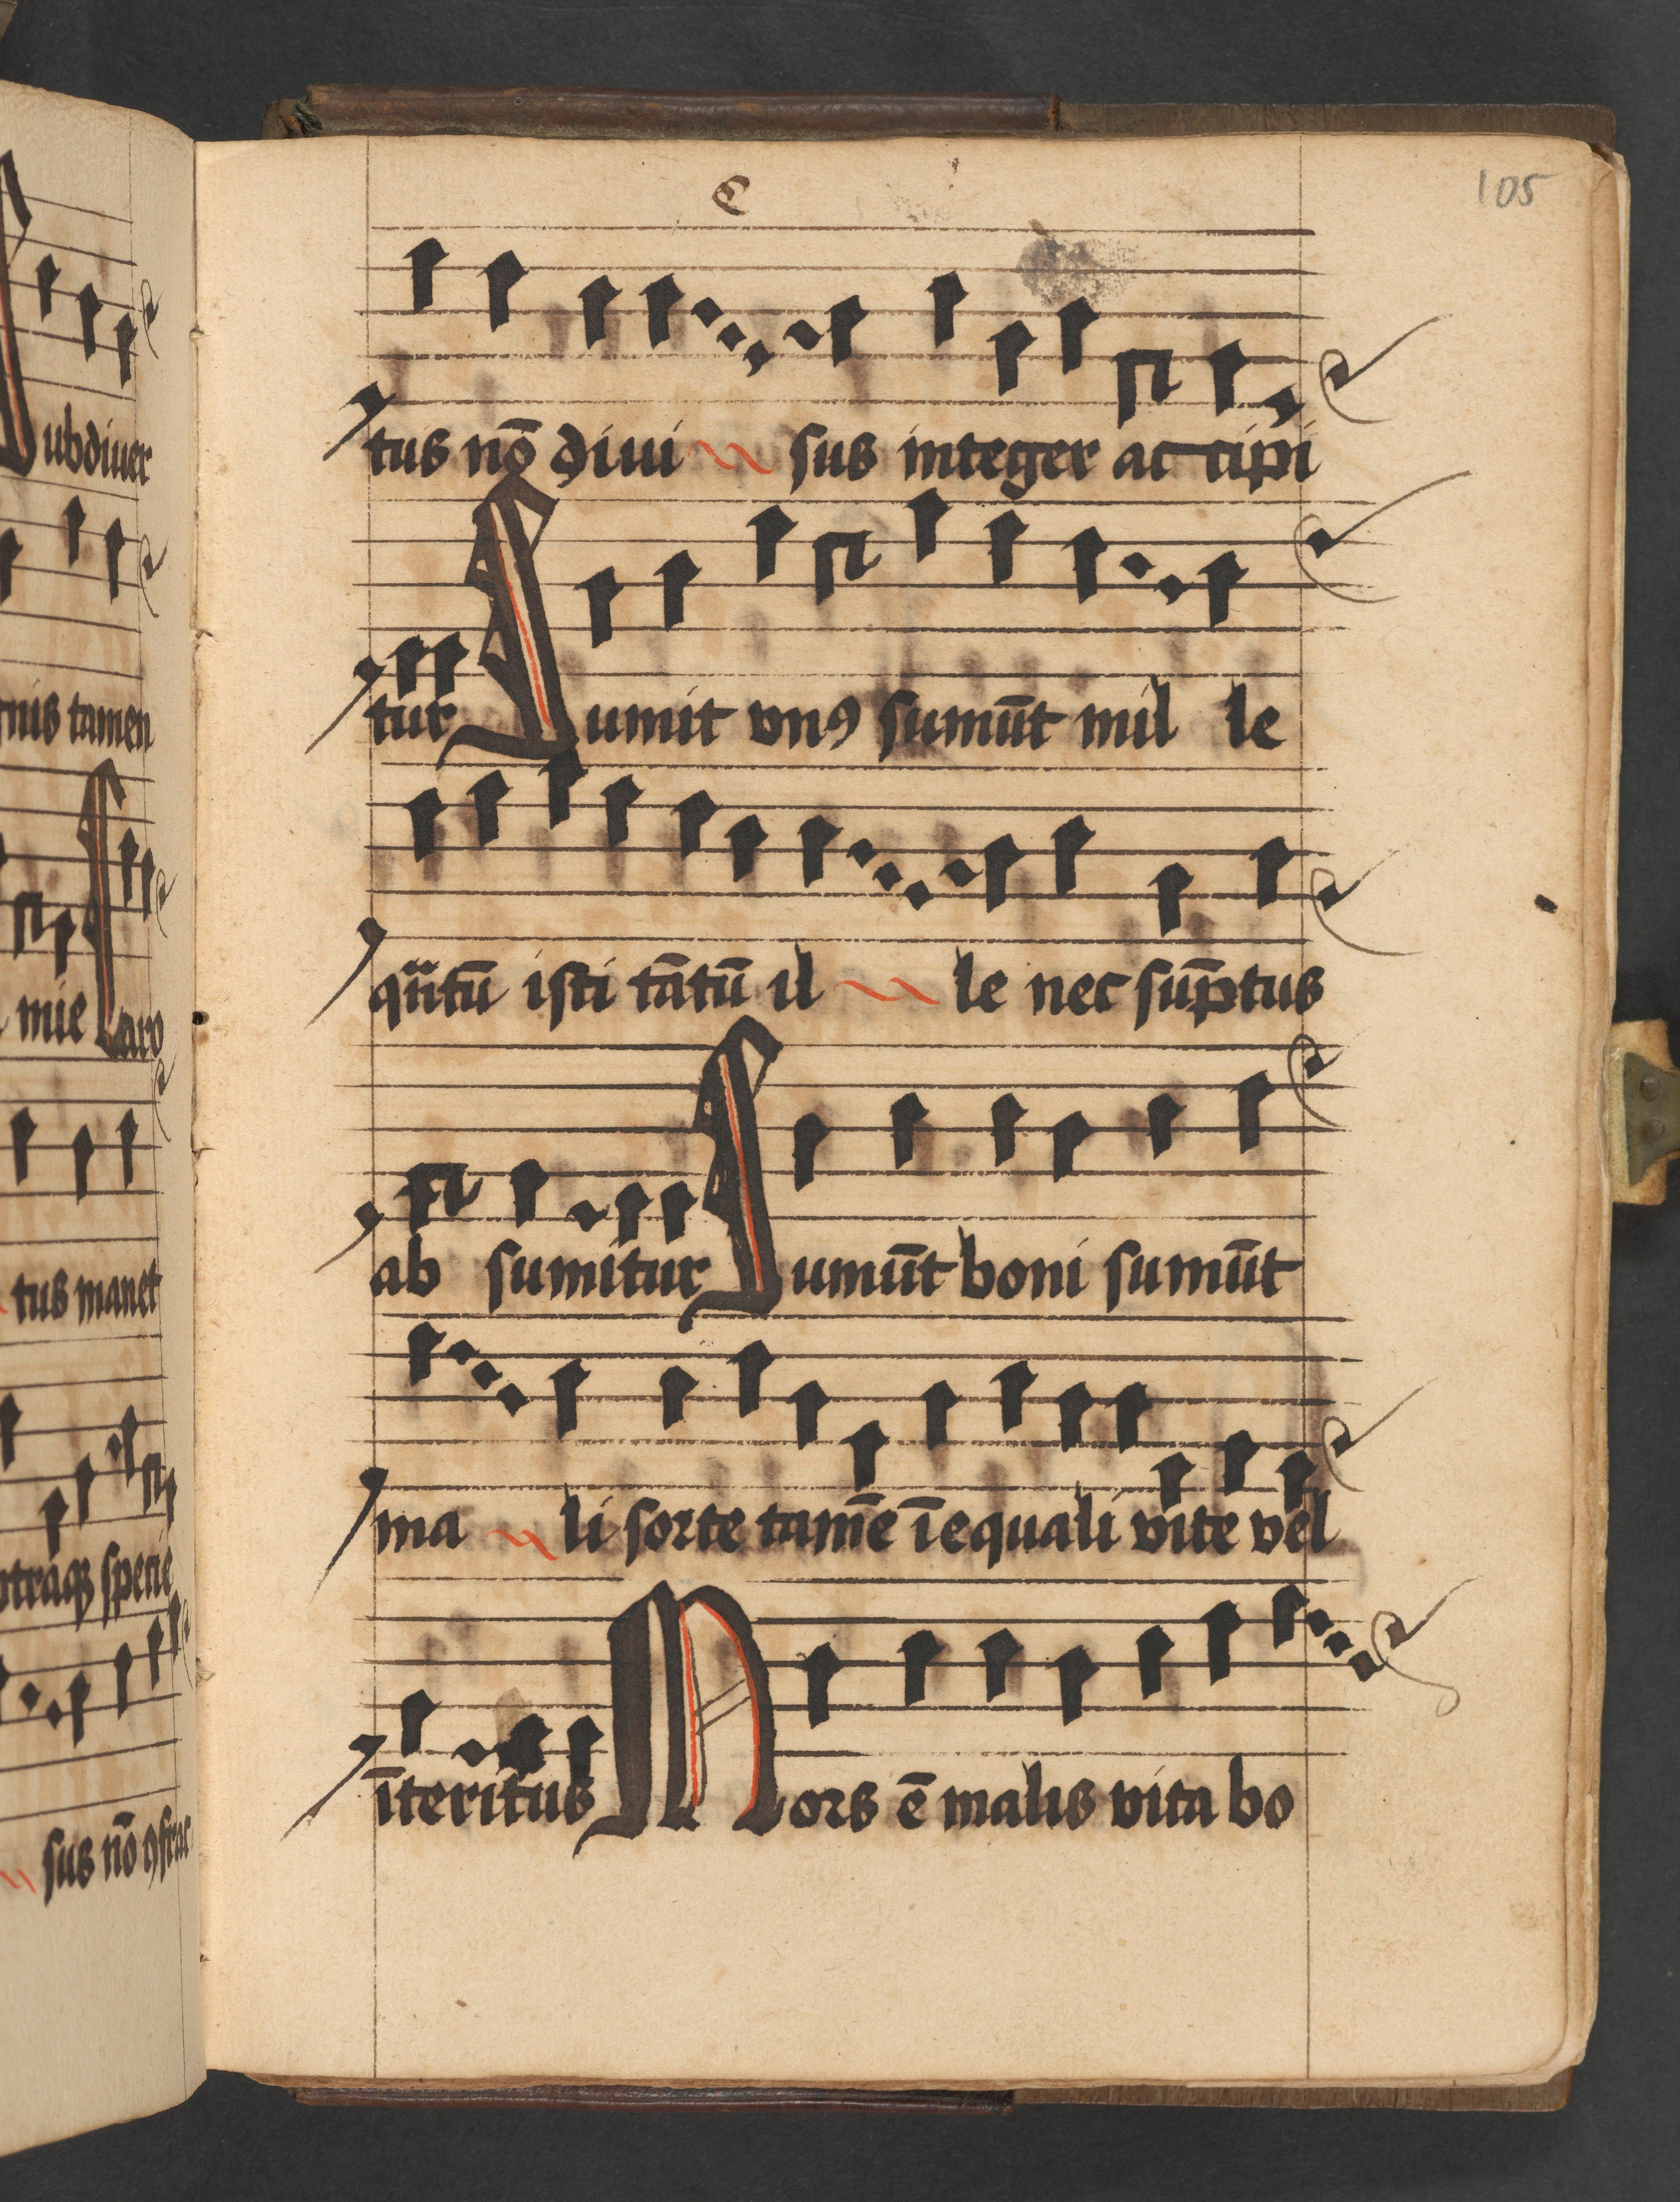 ubdiuer
gnis tamen
mie Caro
tus manet
vtraqꝫ specie
sus nō ꝯfrac
105
tus nō diui sus integer ac cipi
tur Sumit vnꝯ sumūt mil le
qͣntū isti tātū il le nec sūptus
ab sumitur Sumūt boni sumūt
ma li sorte tamē īequali vite vel
īteritus Mors ē malis vita bo